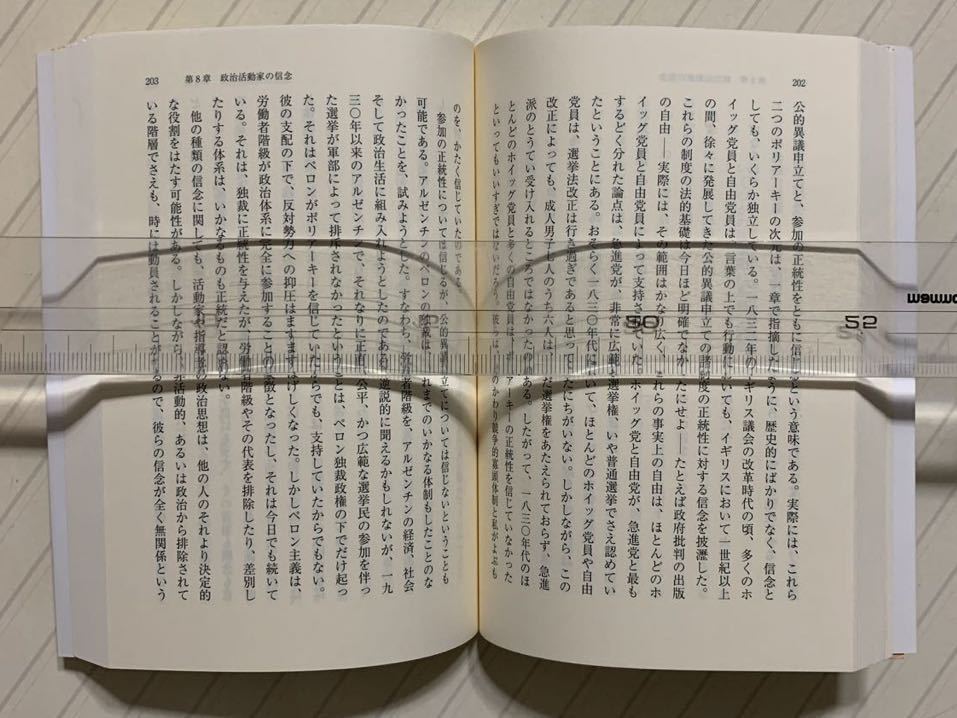 202
公的異議申立てと、参加の正統性をともに信じるという意味である。実際には、これら
二つのポリアーキーの次元は、一章で指摘したように、歴史的にばかりでなく、信念と
しても、いくらか独立している。一八三二年のイギリス議会の改革時代の頃、多くのホ
イッグ党員と自由党員は、言葉の上でも行動においても、イギリスにおいて一世紀以上
の間、徐々に発展してきた公的異議申立ての諸制度の正統性に対する信念を披瀝した。
これらの制度の法的基礎は今日ほど明確でなかったにせよ――たとえば政府批判の出版
の自由――実際には、その範囲はかなり広く、これらの事実上の自由は、ほとんどのホ
イッグ党員と自由党員によって支持されていた。ホイッグ党と自由党が、急進党と最も
するどく分れた論点は、急進党が、非常に広範な選挙権、いや普通選挙でさえ認めてい
たということにある。おそらく一八三〇年代において、ほとんどのホイッグ党員や自由
党員は、選挙法改正は行き過ぎであると思っていたにちがいない。しかしながら、この
改正によっても、成人男子七人のうち六人は、まだ選挙権をあたえられておらず、急進
派のとうてい受け入れるところではなかったのである。したがって、一八三〇年代のほ
とんどのホイッグ党員と多くの自由党員は、ポリアーキーの正統性を信じていなかった
といってもいいすぎではないだろう。彼らは、そのかわり競争的寡頭体制と私がよぶも
203 第8章 政治活動家の信念
のを、かたく信じていたのである。
参加の正統性については信じるが、公的異議申立てについては信じないということも
可能である。アルゼンチンのペロンの独裁は、それまでのいかなる体制もしたことのな
かったことを、試みようとした。すなわち、労働者階級を、アルゼンチンの経済、社会
そして政治生活に組み入れようとしたのである。逆説的に聞えるかもしれないが、一九
三〇年以来のアルゼンチンで、それなりに正直、公平、かつ広範な選挙民の参加を伴っ
た選挙が軍部によって排斥されなかったということは、ペロン独裁政権の下でだけ起っ
た。それはペロンがポリアーキーを信じていたからでも、支持していたからでもない。
彼の支配の下で、反対勢力への抑圧はますますはげしくなった。しかしペロン主義は、
労働者階級が政治体系に完全に参加することの象徴となったし、それは今日でも続いて
いる。それは、独裁に正統性を与えたが、労働者階級やその代表を排除したり、差別し
たりする体系は、いかなるものも正統だと認めない。
他の種類の信念に関しても、活動家や指導者の政治思想は、他の人のそれより決定的
な役割をはたす可能性がある。しかしながら、非活動的、あるいは政治から排除されて
いる階層でさえも、時には動員されることがあるので、彼らの信念が全く無関係という
50
52